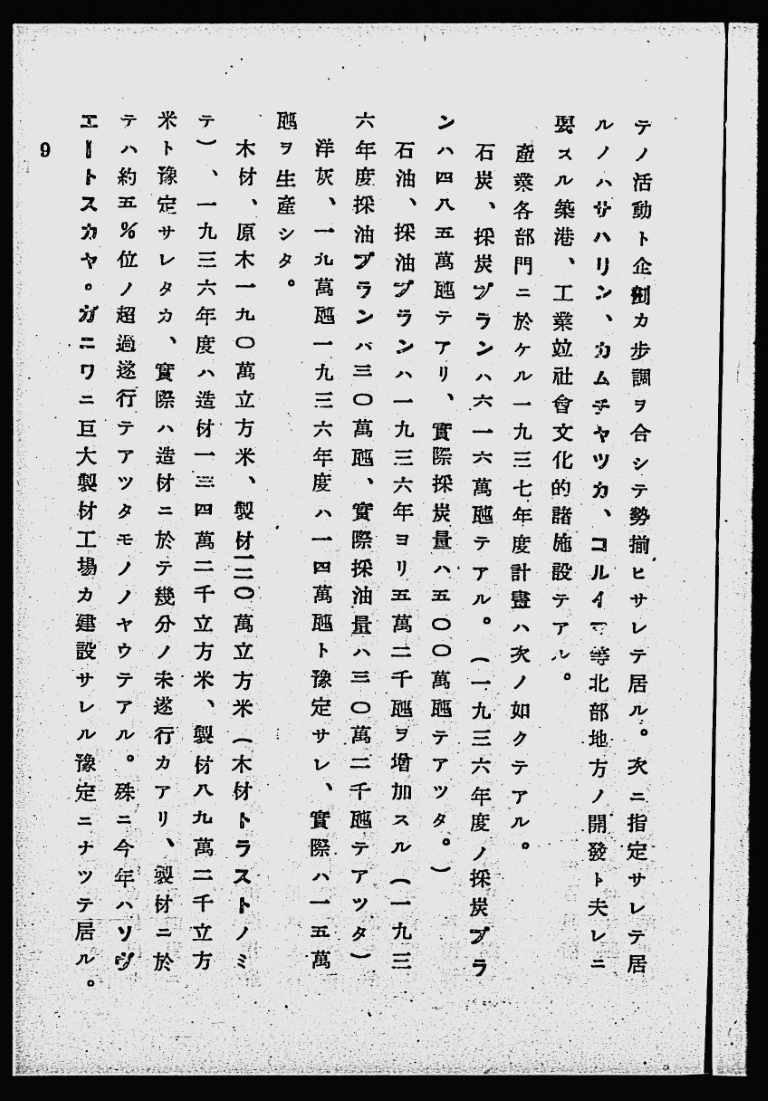 テノ活動ト企劃カ步調ヲ合シテ勢揃ヒサレテ居ル。次ニ指定サレテ居
ルノハサハリン、カムチヤツカ、コルイマ等北部地方ノ開發ト夫レニ
要スル築港、工業竝社會文化的諸施設テアル。
產業各部門ニ於ケル一九三七年度計畫ハ次ノ如クテアル。
石炭、採炭プランハ六一六萬瓲テアル。(一九三六年度ノ採炭プラ
ンハ四八五萬瓲テアリ、實際採炭量ハ五〇〇萬瓲テアツタ。)
石油、採油プランハ一九三六年ヨリ五萬二千瓲ヲ增加スル(一九三
六年度採油プランバ三〇萬瓲、實際採油量ハ三〇萬二千瓲テアツタ)
洋灰、一九萬瓲一九三六年度ハ一四萬瓲ト豫定サレ、實際ハ一五萬
瓲ヲ生產シタ。
木材、原木一九〇萬立方米、製材一二〇萬立方米(木材トラストノミ
テ)、一九三六年度ハ造材一三四萬二千立方米、製材八九萬二千立方
米ト豫定サレタカ、實際ハ造材ニ於テ幾分ノ未遂行カアリ、製材ニ於
テハ約五%位ノ超過遂行テアツタモノノヤウテアル。殊ニ今年ハソヴ
エートスカヤ。ガニワニ巨大製材工場カ建設サレル豫定ニナツテ居ル。
9